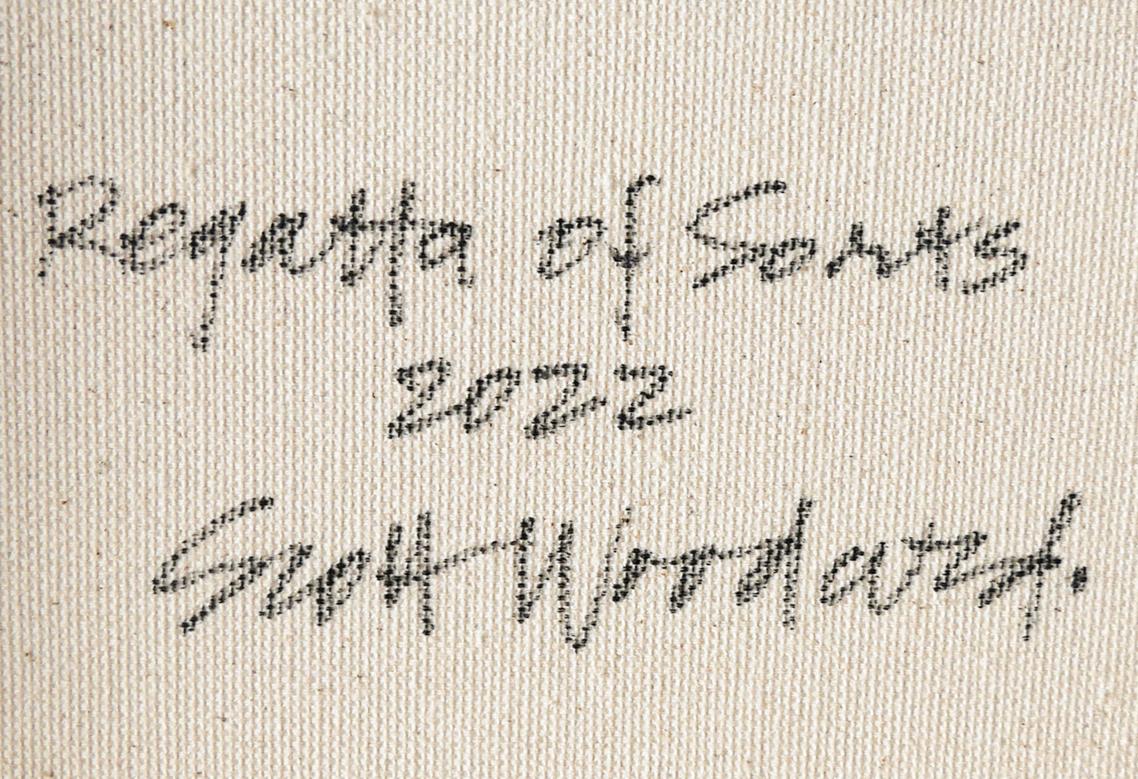 Regatta of Sorts
2022
Scott Woodward.